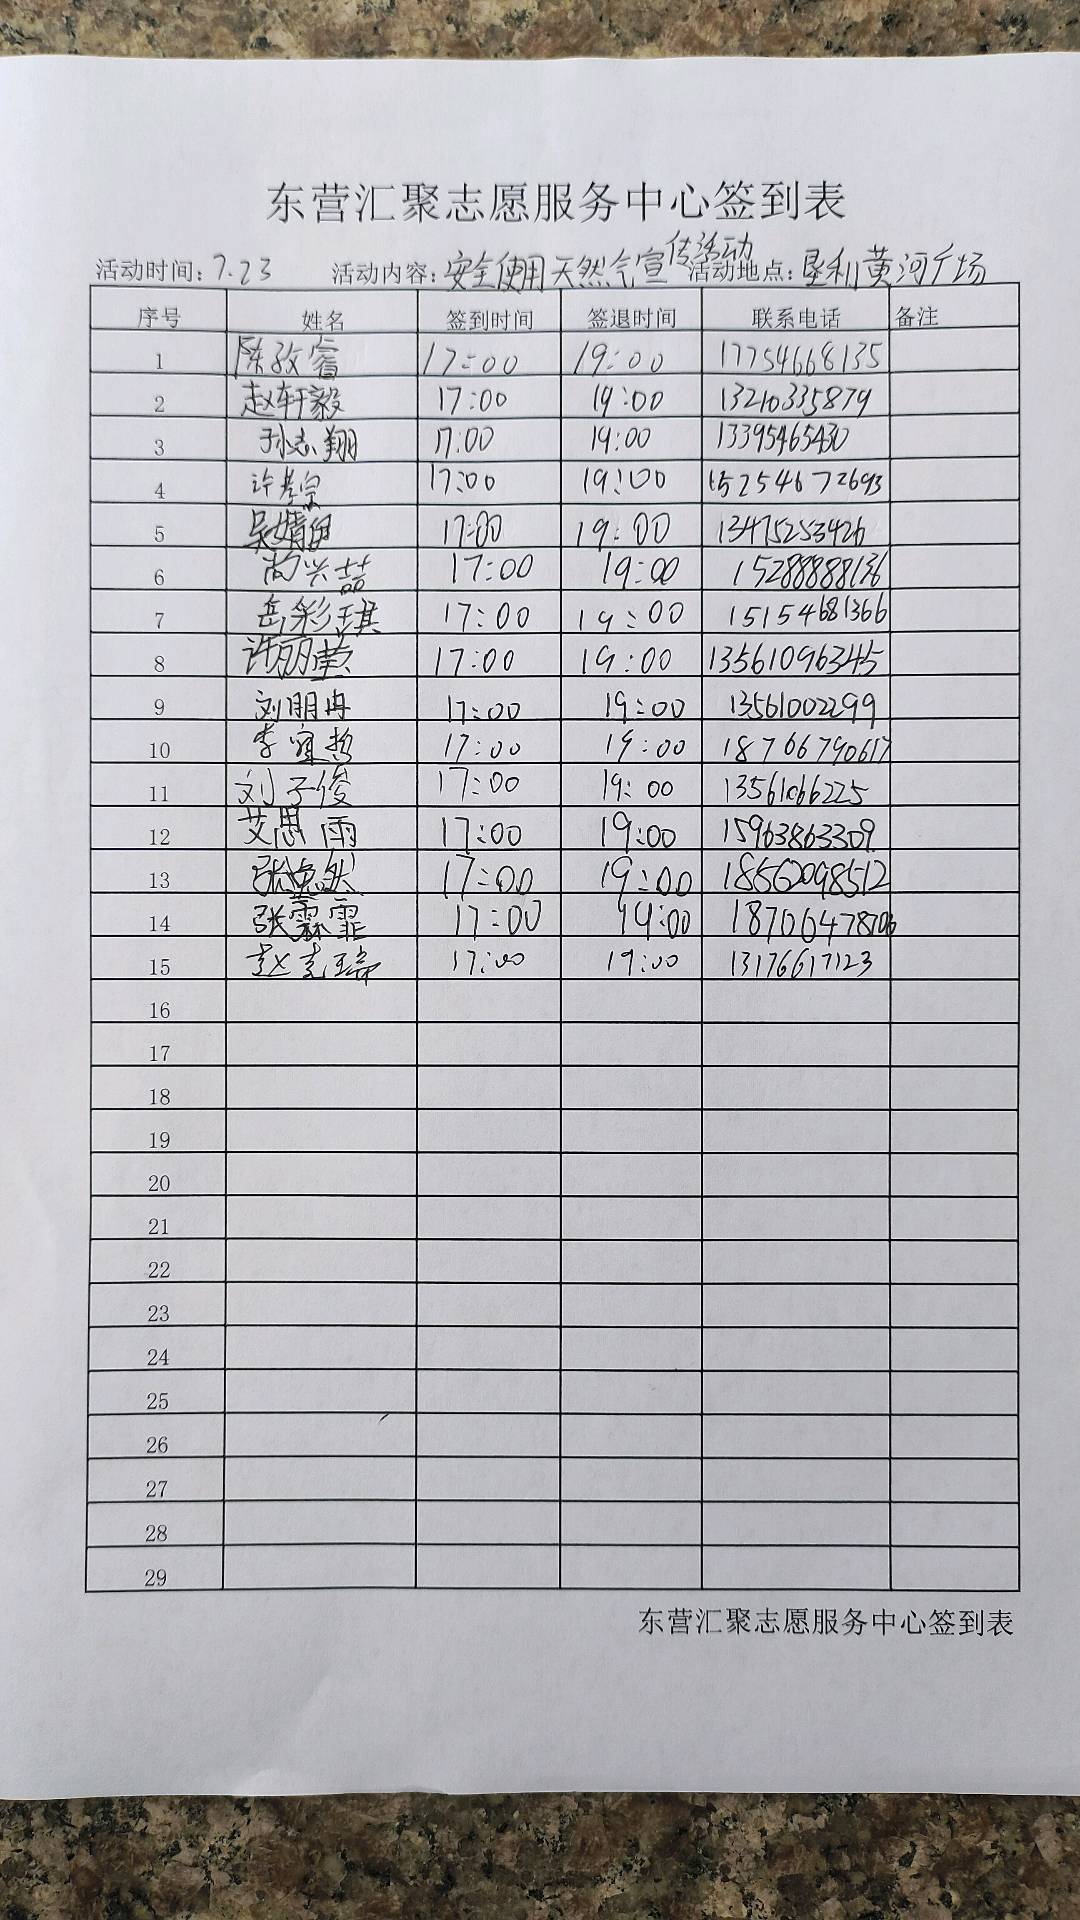 东营汇聚志愿服务中心签到表
活动时间:7.23 活动内容:安全使用天然气宣传活动 活动地点:垦利黄河广场
序号 姓名 签到时间 签退时间 联系电话 备注
1 陈孜睿 17:00 19:00 17754668135
2 赵轩毅 17:00 19:00 13210335879
3 孙志翔 17:00 19:00 13395465430
4 许孝宗 17:00 19:00 15254672693
5 17:00 19:00 13475253426
6 尚兴喆 17:00 19:00 15288888136
7 岳彩琪 17:00 19:00 15154681366
8 许丽莹 17:00 19:00 13561096345
9 刘明冉 17:00 19:00 13561002299
10 李宜哲 17:00 19:00 18766790617
11 刘子俊 17:00 19:00 13561066225
12 艾思雨 17:00 19:00 15963863309
13 17:00 19:00 18562098512
14 张霖霏 17:00 19:00 18706478706
15 17:00 19:00 13176617123
16
17
18
19
20
21
22
23
24
25
26
27
28
29
东营汇聚志愿服务中心签到表